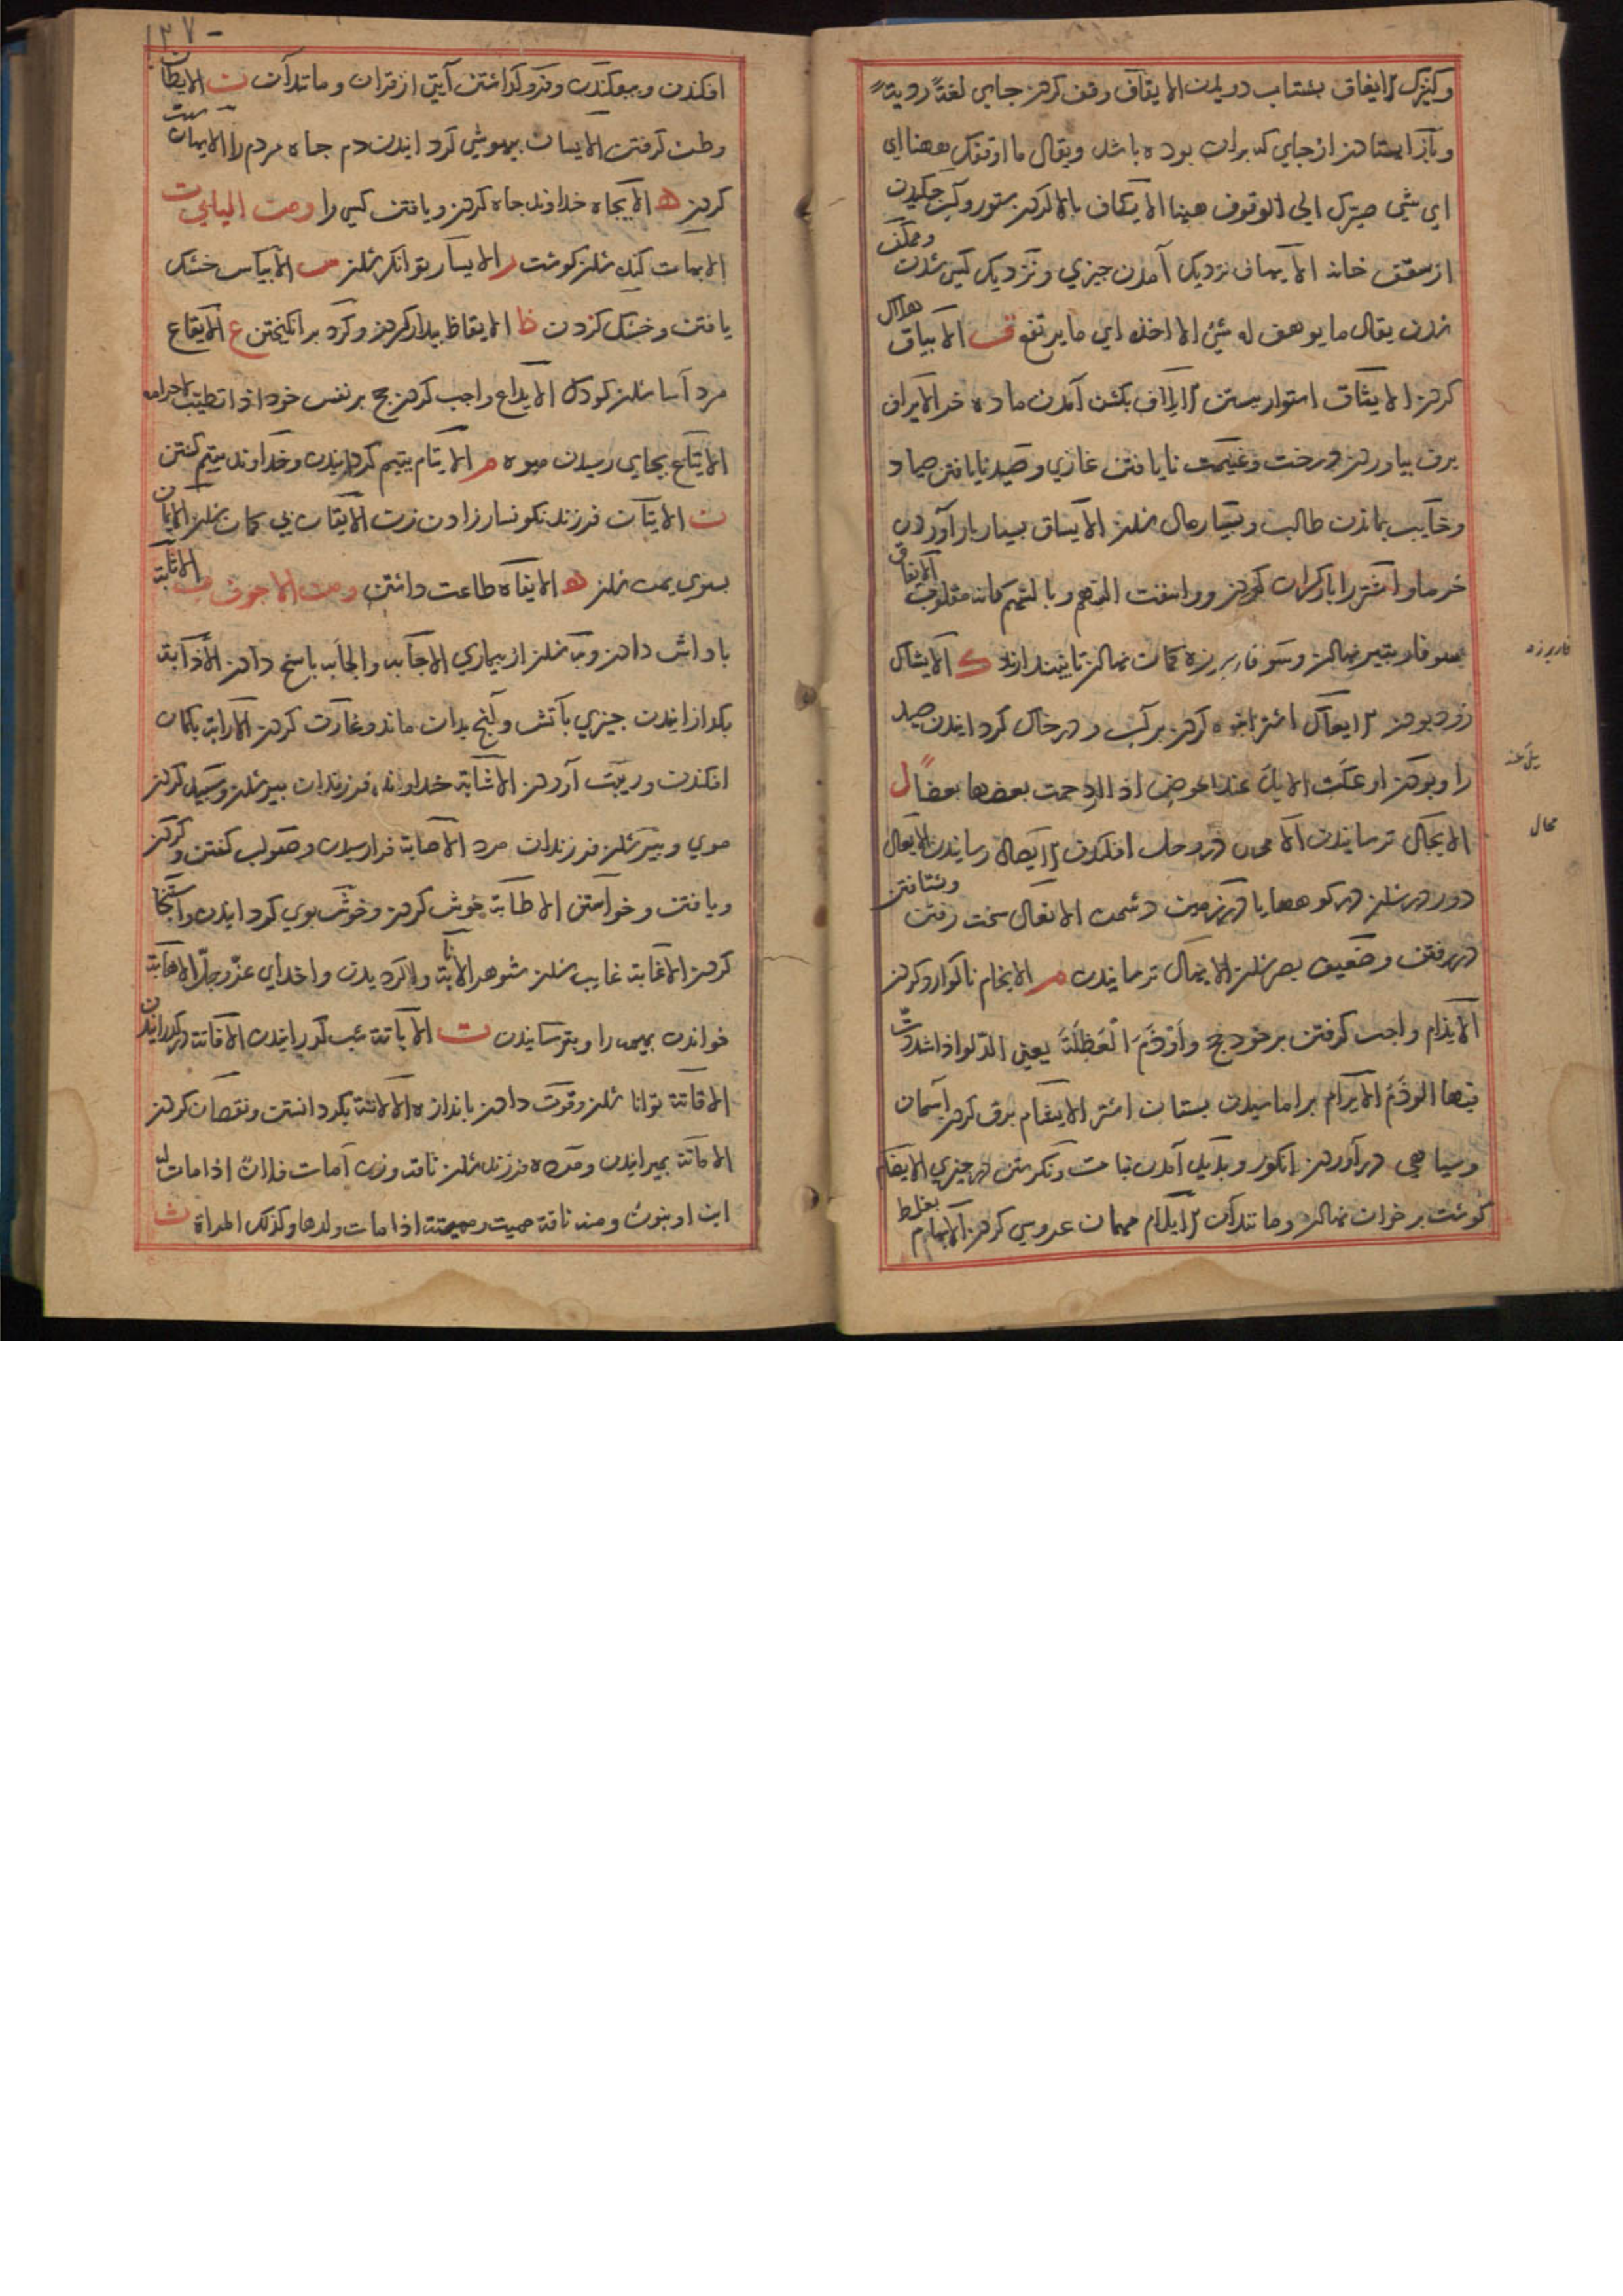 و کنیزک الایفاق بشتاب دویدن الایقاف وقف کردن جای لغة ردیة
و باز ایستادن از جای که بران بوده باشد ویقال ما اوقفک ههنا ای
ای شی صیرک الی الوقوف هینا الایکاف پالان کردن ستور و آب چکیدن
از سقف خانه الایهاف نزدیک آمدن چیزی و نزدیک کسی شدن و ممکن
شدن یقال ما یوهف له شیء الا اخذه ای ما یرتفع ق الایباق هلاک
کردن الایثاق استوار بستن الایداق بکشن آمدن ماده خر الایراق
برک بیاوردن درخت و غنیمت نایافتن غازی و صید نایافتن صیاد
و خایب بماندن طالب و بسیار مال شدن الایساق بسیار بار آوردن
خرما و اشتر را بار کران کردن و اوفقت السهم و بالسهم کانه مقلوب الایفاق
سوفار بتیر نهادن و سوفار بر زه کمان نهادن تا بیندازند ک الایشاک
زود بودن الایعاک اشتر انبوه کردن بر آب و در خاک کردانیدن صید
را و بودن اوعکت الابل عند الحوض اذا ازدحمت بعضها بعضا ل
الایجال ترسانیدن الایحال در وحل افکندن الایصال رسانیدن الایغال
دور در شدن در کوهها یا در زمین دشمن الایغال سخت رفتن و شتافتن
در رفتن و ضعیف بصر شدن الایهال ترسانیدن م الایخام ناکوارد کردن
الایذام واجب کرفتن بر خود حج و أوذم العظلة یعنی الدلو اذا شددت
فیها الوذم الایرام براماسیدن پستان اشتر الایشام برق کردن آسمان
و سیاهی در آوردن انکور و پدید آمدن نبات و نکرستن در چیزی الایضام
کوشت بر خوان نهادن و مانند آن الایلام مهمان عروسی کردن الایهام بغلط
فاربرزه
یل عند
محال
۱۳۷
افکندن و بیفکندن و فروکذاشتن آیتی از قران و مانند آن ن الایطان
وطن کرفتن الایسان بیهوشی کردانیدن دم چاه مردم را الایهان سست
کردن ه الایجاه خداوند جاه کردن و یافتن کسی را ومن الیایی ت
الایبات کنده شدن کوشت ر الایسار توانکر شدن س الایباس خشک
یافتن و خشک کردن ظ الایقاظ بیدار کردن و کرد برانکیختن ع الایفاع
مرد آسا شدن کودک الایداع واجب کردن حج بر نفس خود اذا تطیب لاحرامه
الایناع بجای رسیدن میوه م الایتام یتیم کردانیدن و خداوند یتیم کشتن
ن الایتان فرزند نکونسار زادن زن الایقان بی کمان شدن الایمان
بسوی یمن شدن ه الایفاه طاعت داشتن ومن الاجوف ب الاثابة
پاداش دادن و به شدن از بیماری الاجابه والجابه پاسخ دادن الاذابة
بکدازانیدن چیزی بآتش و آنچ بدان ماند و غارت کردن الارابة بکمان
افکندن و ریبت آوردن الاشابة خداوند فرزندان پیر شدن و سپید کردن
موی و پیر شدن فرزندان مرد الاصابة فرارسیدن و صواب کفتن و کردن
و یافتن و خواستن الاطابة خوش کردن و خوش بوی کردانیدن و استنجا
کردن الاغابة غایب شدن شوهر الانابة واکردیدن و اخدای عز وجل الاهابة
خواندن بهیمه را و بترسانیدن ت الاباتة شب کذرانیدن الافاتة درکذرانیدن
الاقاتة توانا شدن و قوت دادن باندازه الالاتة بکردانستن و نقصان کردن
الاماتة بمیرانیدن و مرده فرزند شدن ناقه و زن أمات فلان اذا مات له
ابن او بنون و منه ناقة ممیت و ممیتة اذا مات ولدها وکذلک المراة ث